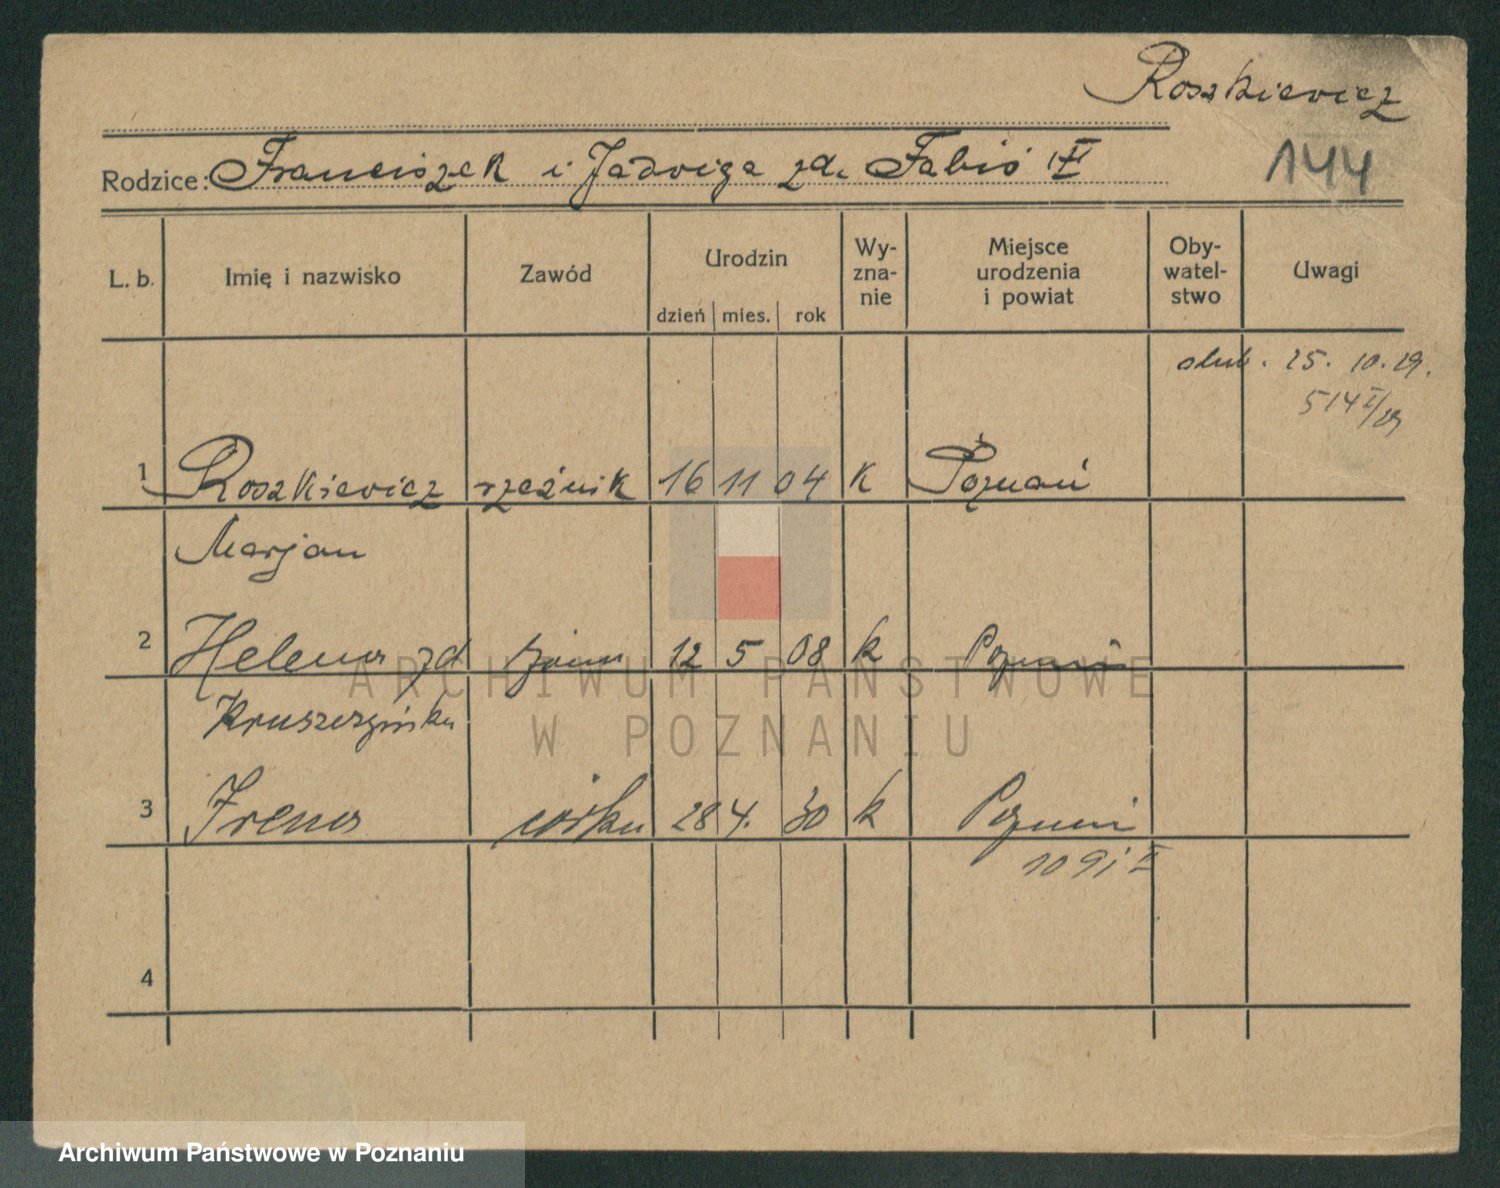 Roszkiewicz
144
Rodzice: Franciszek i Jadwiga zd. Fabiś VI
L. b. Imię i nazwisko Zawód Urodzin dzień mies. rok Wy-zna-nie Miejsce urodzenia i powiat Oby-watel-stwo Uwagi
ślub. 25. 10. 29.
514 I/29
1 Roszkiewicz rzeźnik 16 11 04 k Poznań
Marjan
2 Helena zd żona 12 5 08 k Poznań
Kruszczyńska
3 Irena córka 28 4. 30 k Poznań
1091 II
4
ARCHIWUM PAŃSTWOWE
W POZNANIU
Archiwum Państwowe w Poznaniu